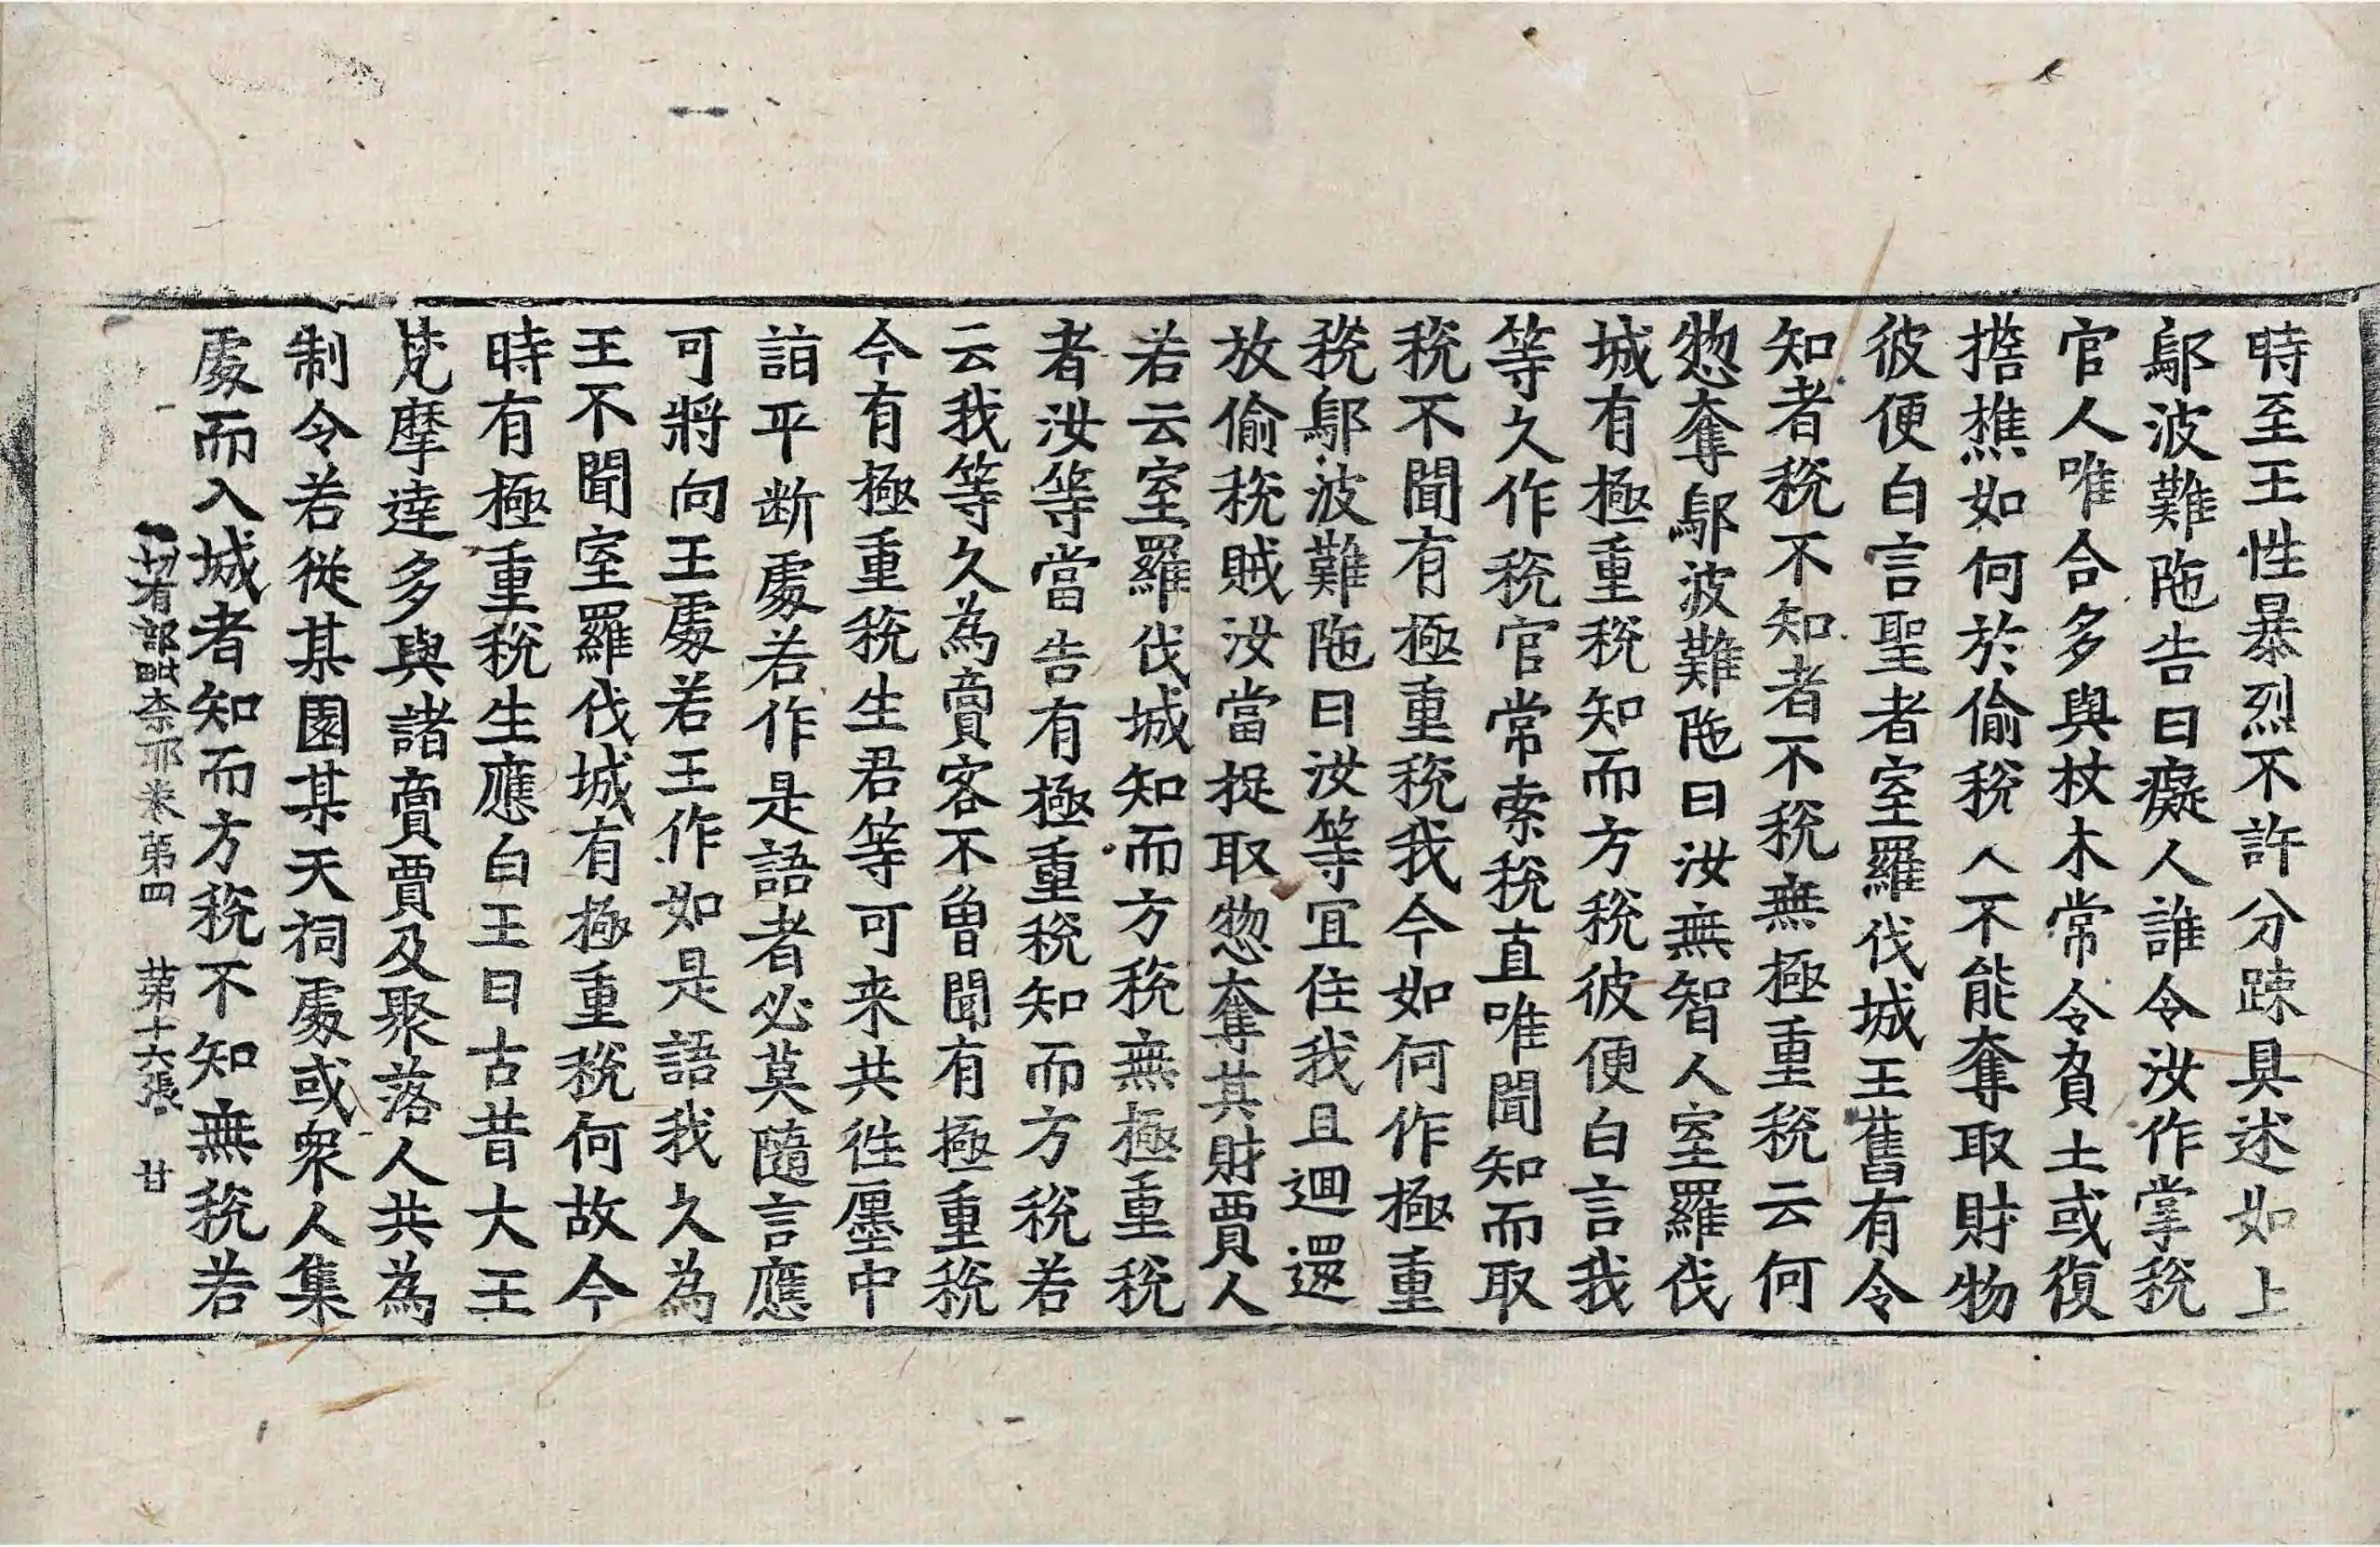 時至王性暴烈不許分踈具述如上
鄔波難陁告曰癡人誰令汝作掌稅
官人唯合多與杖木常令負土或復
擔樵如何於偷稅人不能奪取財物
彼便白言聖者室羅伐城王舊有令
知者稅不知者不稅無極重稅云何
惣奪鄔波難陁曰汝無智人室羅伐
城有極重稅知而方稅彼便白言我
等久作稅官常索稅直唯聞知而取
稅不聞有極重稅我今如何作極重
稅鄔波難陁曰汝等宜住我且迴還
放偷稅賊汝當捉取惣奪其財賈人
若云室羅伐城知而方稅無極重稅
者汝等當告有極重稅知而方稅若
云我等久為賣客不曾聞有極重稅
今有極重稅生君等可来共往廛中
詣平断處若作是語者必莫隨言應
可將向王處若王作如是語我久為
王不聞室羅伐城有極重稅何故今
時有極重稅生應白王曰古昔大王
梵摩達多與諸賣賈及聚落人共為
制令若從某園某天祠處或眾人集
處而入城者知而方稅不知無稅若
一切有部毗奈耶卷第四 第十六張 甘